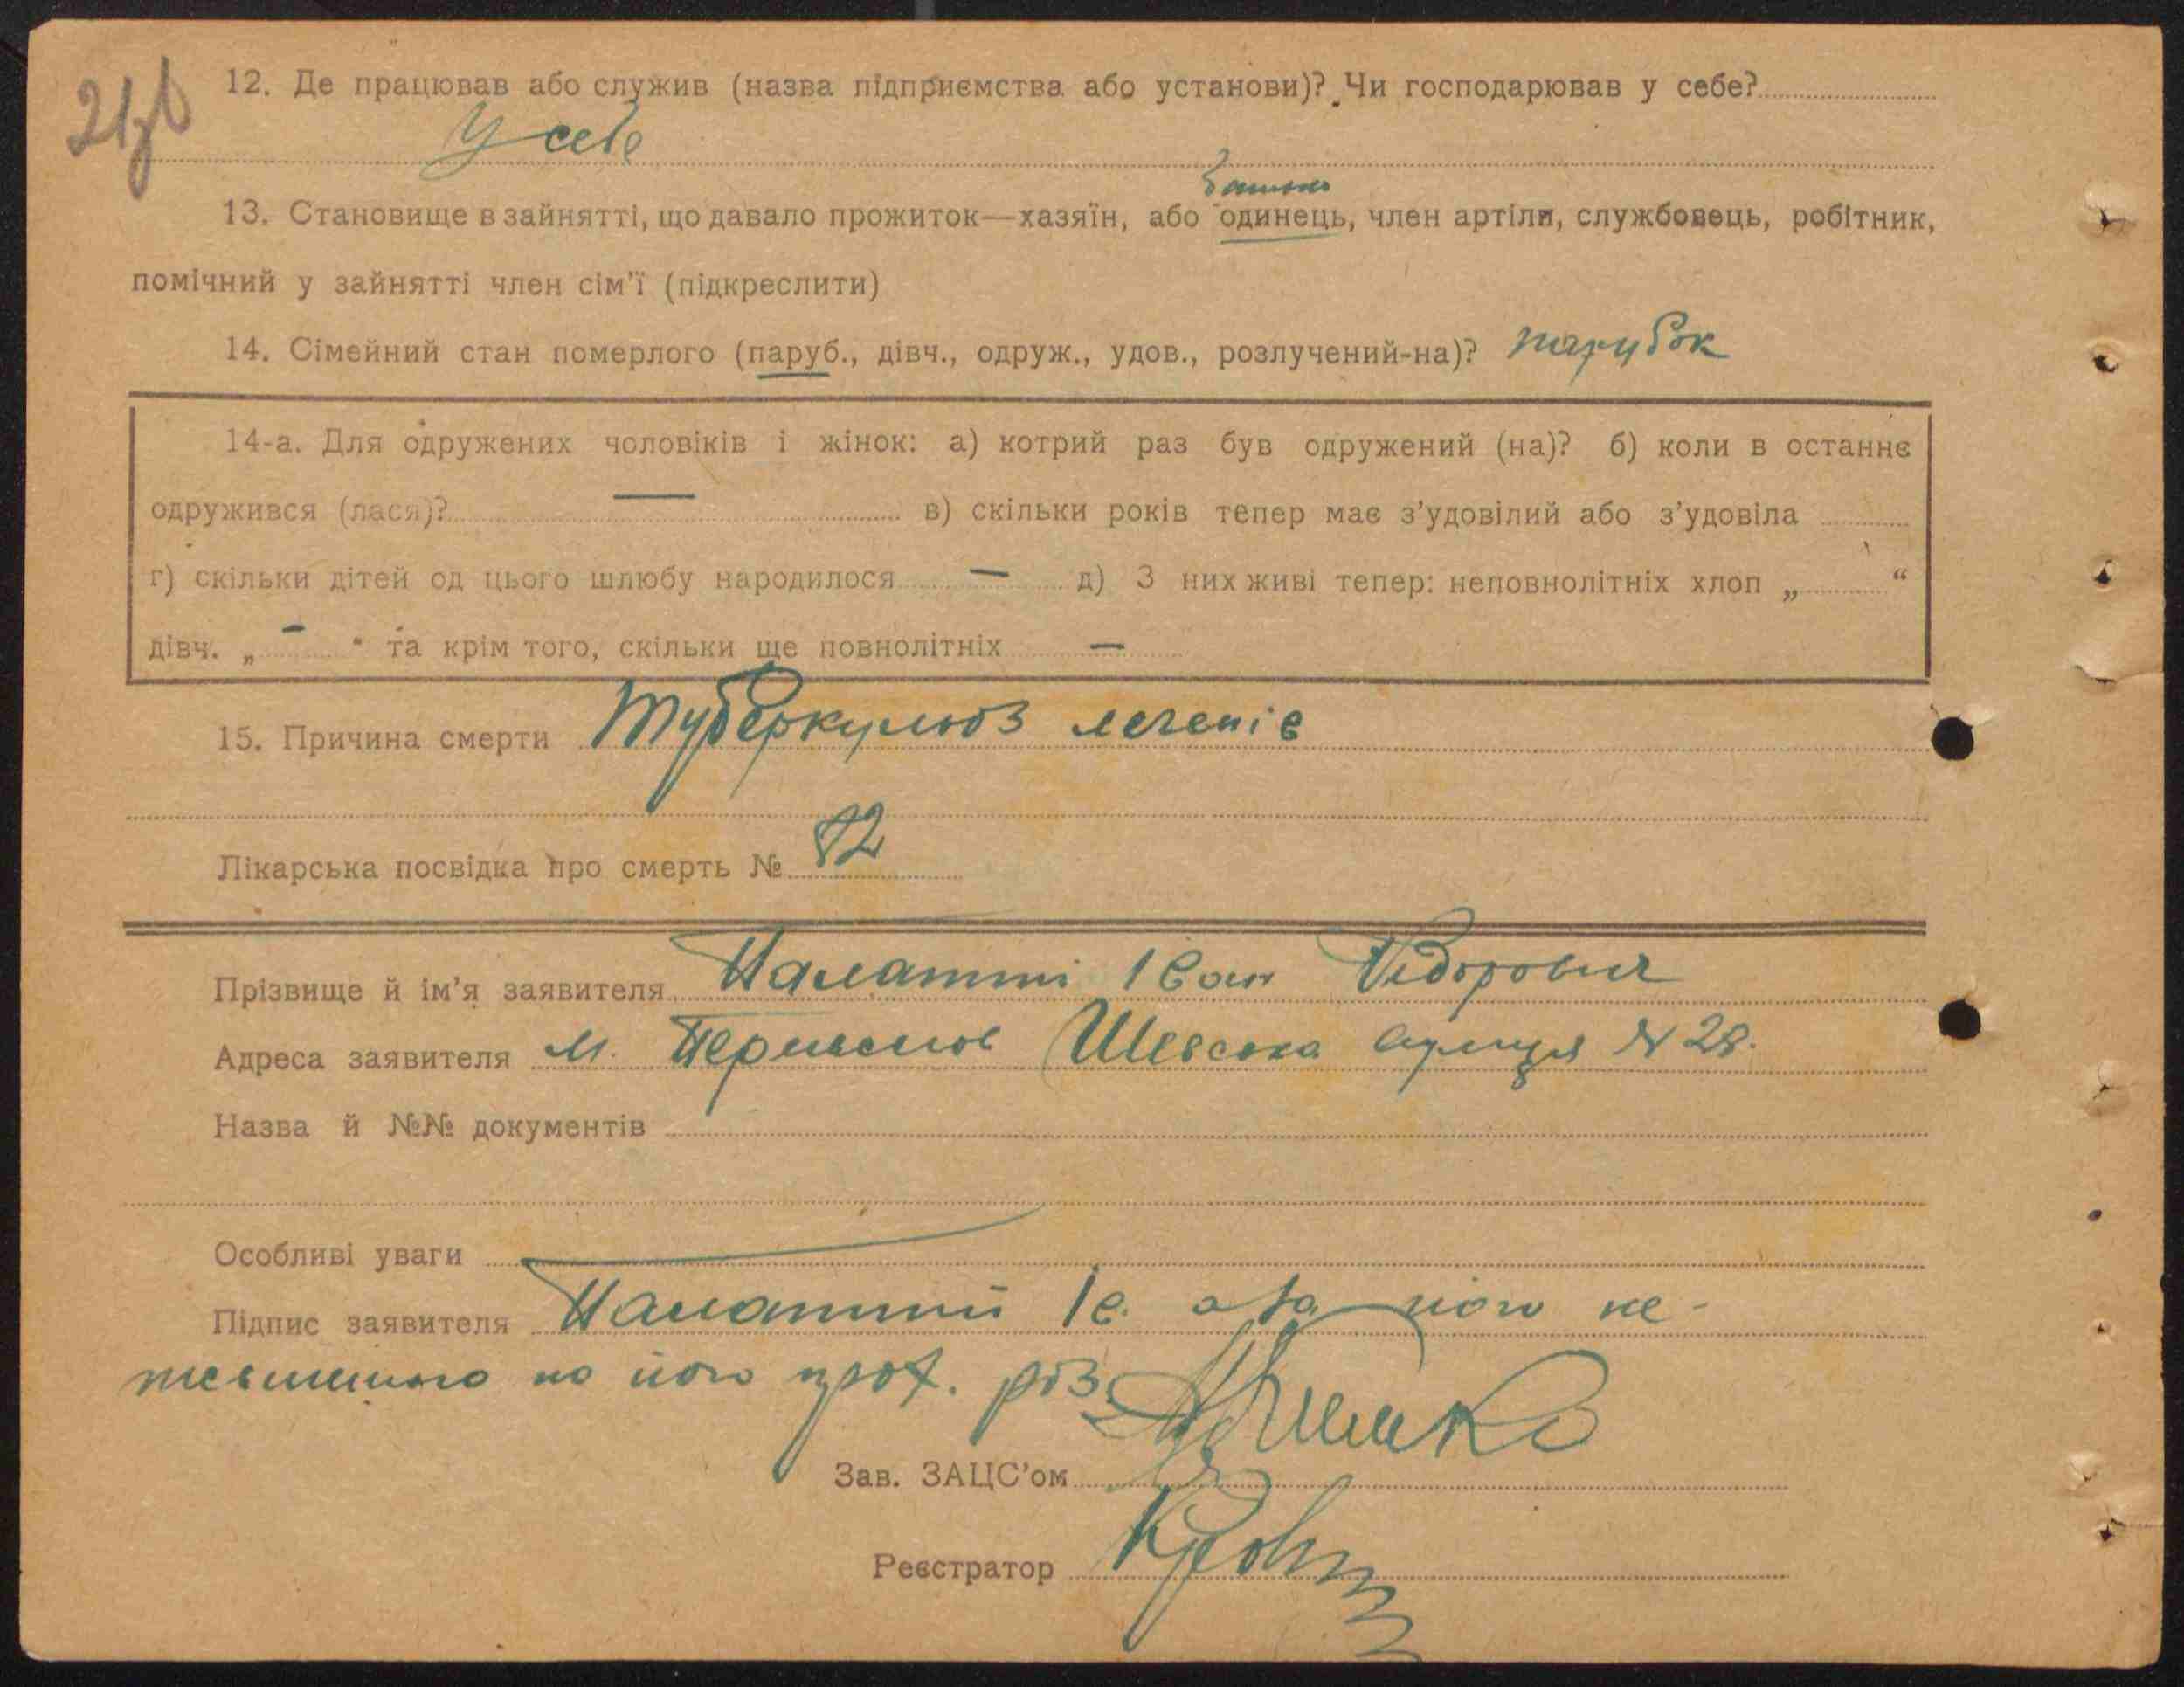 21зв
12. Де працював або служив (назва підприємства або установи)? Чи господарював у себе?
У себе
батько
13. Становище в зайнятті, що давало прожиток—хазяїн, або одинець, член артіли, службовець, робітник,
помічний у зайнятті член сім'ї (підкреслити)
14. Сімейний стан померлого (паруб., дівч., одруж., удов., розлучений-на)? парубок
14-а. Для одружених чоловіків і жінок: а) котрий раз був одружений (на)? б) коли в останнє
одружився (лася)? — в) скільки років тепер має з'удовілий або з'удовіла
г) скільки дітей од цього шлюбу народилося — д) З них живі тепер: неповнолітніх хлоп „ “
дівч. „ — “ та крім того, скільки ще повнолітніх —
15. Причина смерти Туберкульоз легенів
Лікарська посвідка про смерть № 82
Прізвище й ім'я заявителя Іван Федорович
Адреса заявителя м. вулиця № 28.
Назва й №№ документів
Особливі уваги
Підпис заявителя Ів. а за його не-
на його прох. роз.
Зав. ЗАЦС'ом
Реєстратор